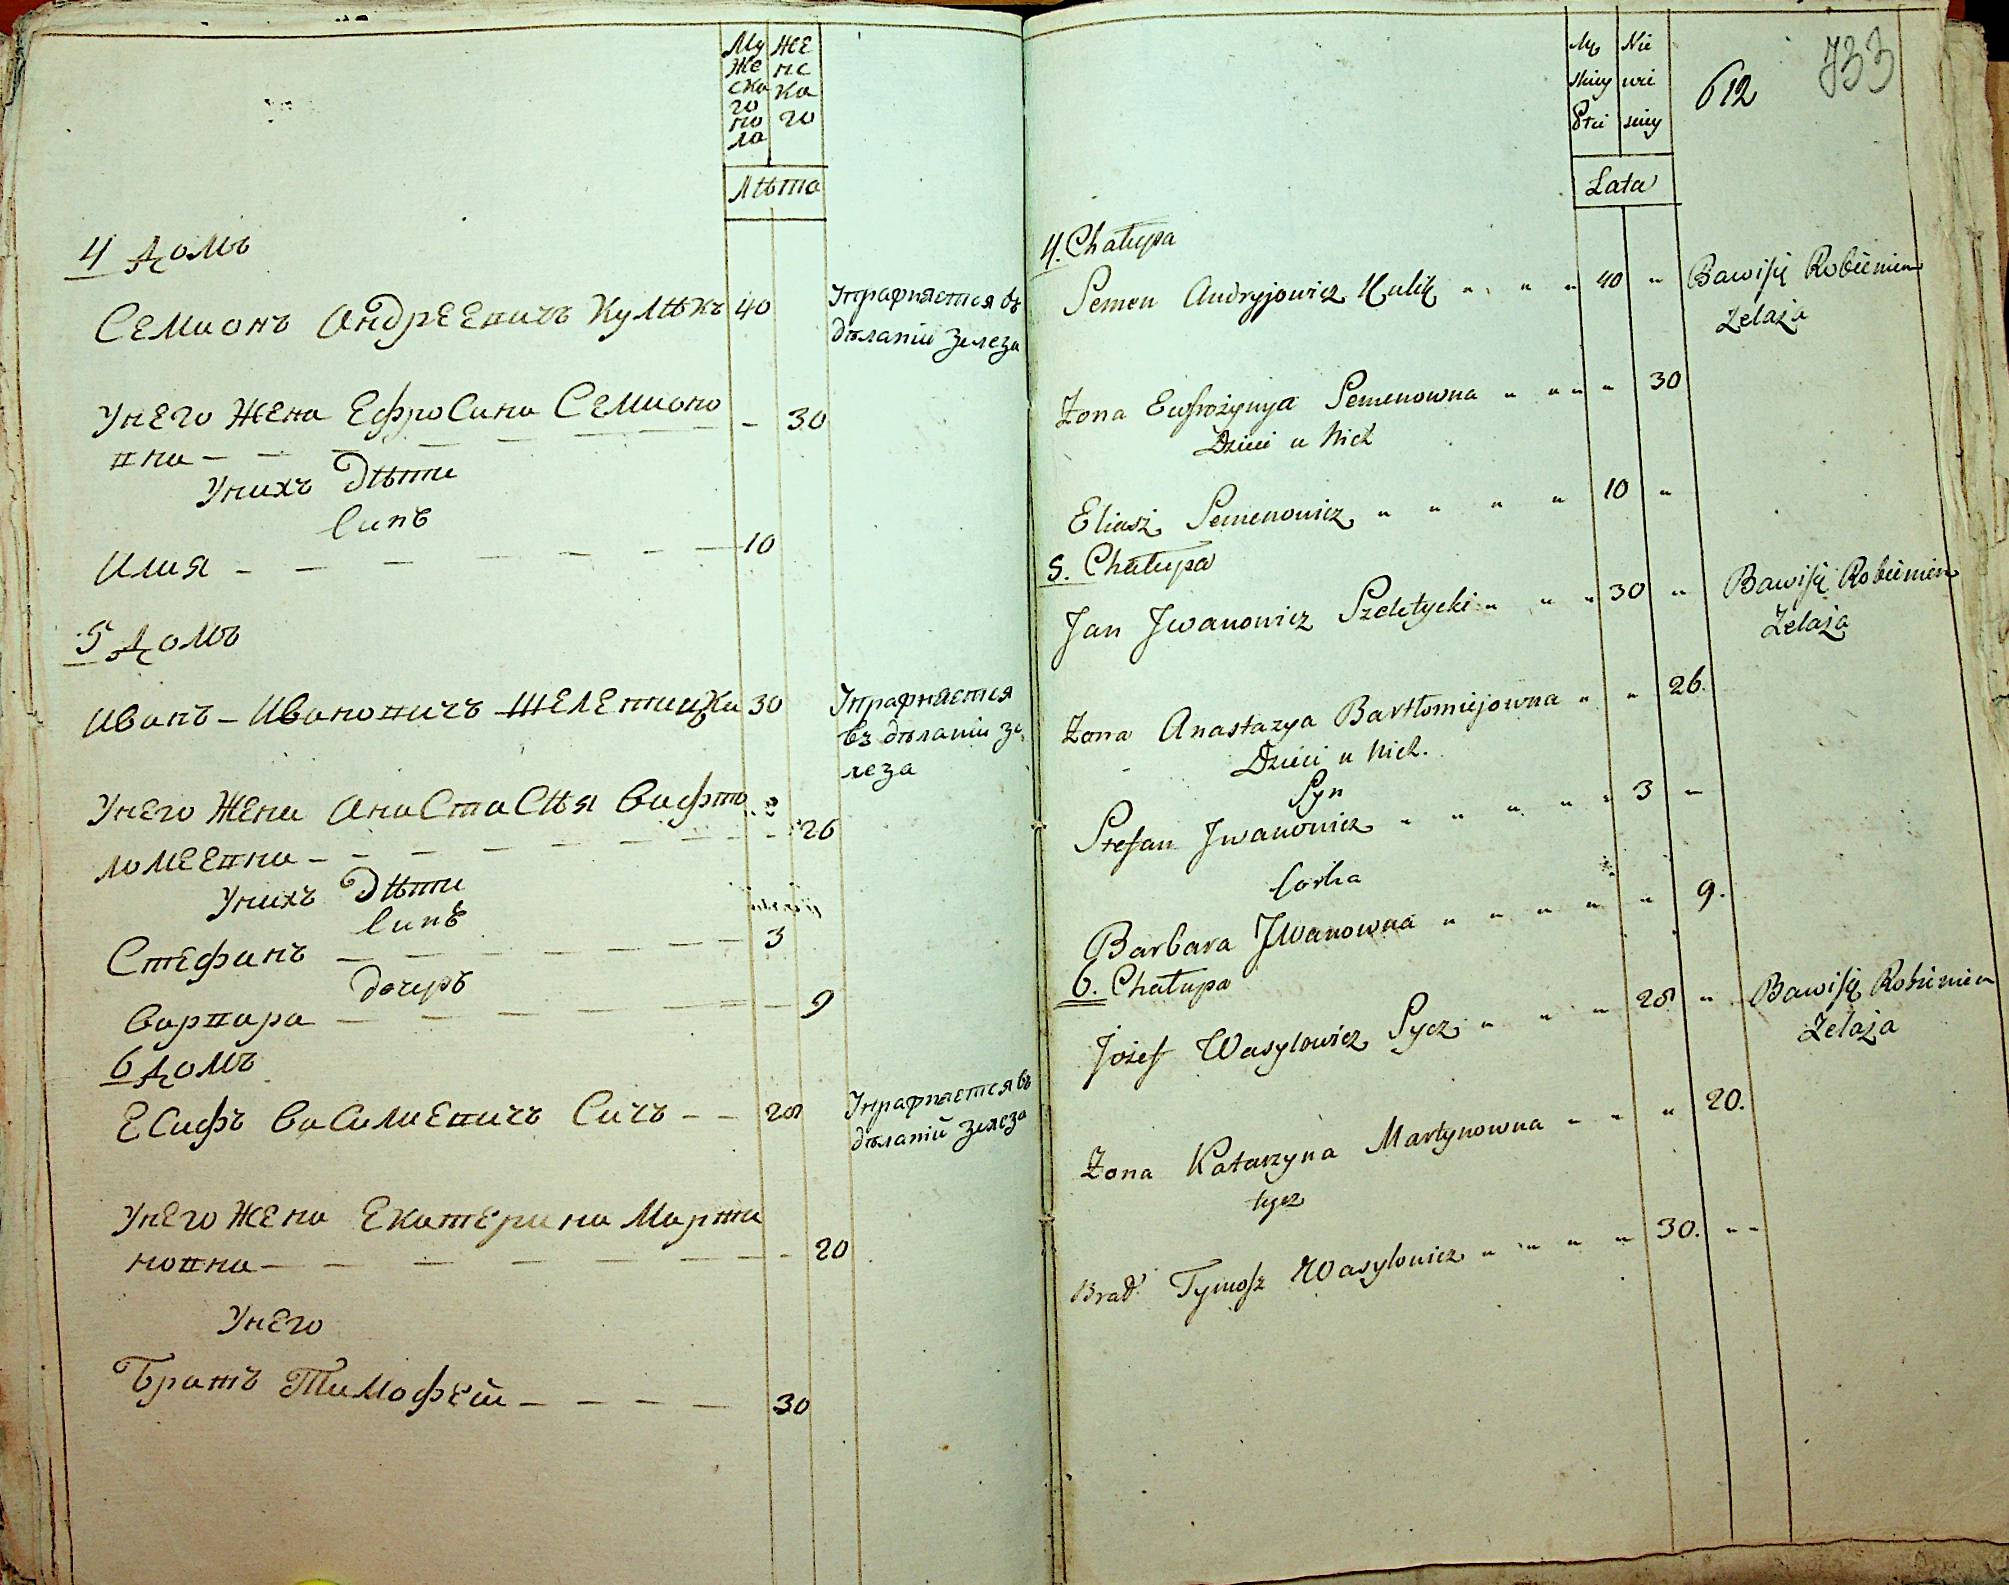 Му Же ска го по ла
ЖЕ нс ка го
Лѣта
4 Домъ
Семионъ Андреевичъ Кулѣкъ 40
Упражняется въ
дѣланіи Зелеза
Унего Жена Ефросина Семионо
вна — — — — — — 30
Унихъ Дѣти
Синъ
Илия — — — — — — 10
5 Домъ
Иванъ – Ивановичъ Шелетицки 30
Упражняется
въ дѣланіи Зе
леза
Унего Жена Анастасѣя Варфто
ломеевна — — — — — — 26
Унихъ Дѣти
Синъ
Стефанъ — — — — — — 3
дочеръ
Варвара — — — — — — 9
6 Домъ
Есифъ Василиевичъ Сичъ — — 28
Упражняется въ
дѣланіи Зелеза
Унего Жена Екатерина Марти
новна — — — — — — 20
Унего
Братъ Тимофей — — — — 30
733
612
Mę skiey Płci
Nie wie sciey
Lata
4. Chałupa
Semen Andryjowicz Kulik " " " " 40 "
Bawi się Robieniem
Żelaza
Żona Eufrozynya Semenowna " " " " 30
Dzieci u Nich
Eliasz Semenowicz " " " " 10 "
5. Chałupa
Jan Jwanowicz Szeletycki " " " 30 "
Bawi się Robieniem
Żelaza
Żona Anastazya Bartłomiejowna " " 26.
Dzieci u Nich.
Syn
Stefan Jwanowicz " " " " " 3 "
Corka
Barbara Jwanowna " " " " " " 9.
6. Chałupa
Jozef Wasylowicz Sycz " " " 28 "
Bawi się Robieniem
Żelaza
Żona Katarzyna Martynowna " " " 20.
tegoż
Brat Tymosz Wasylowicz " " " " 30. " "